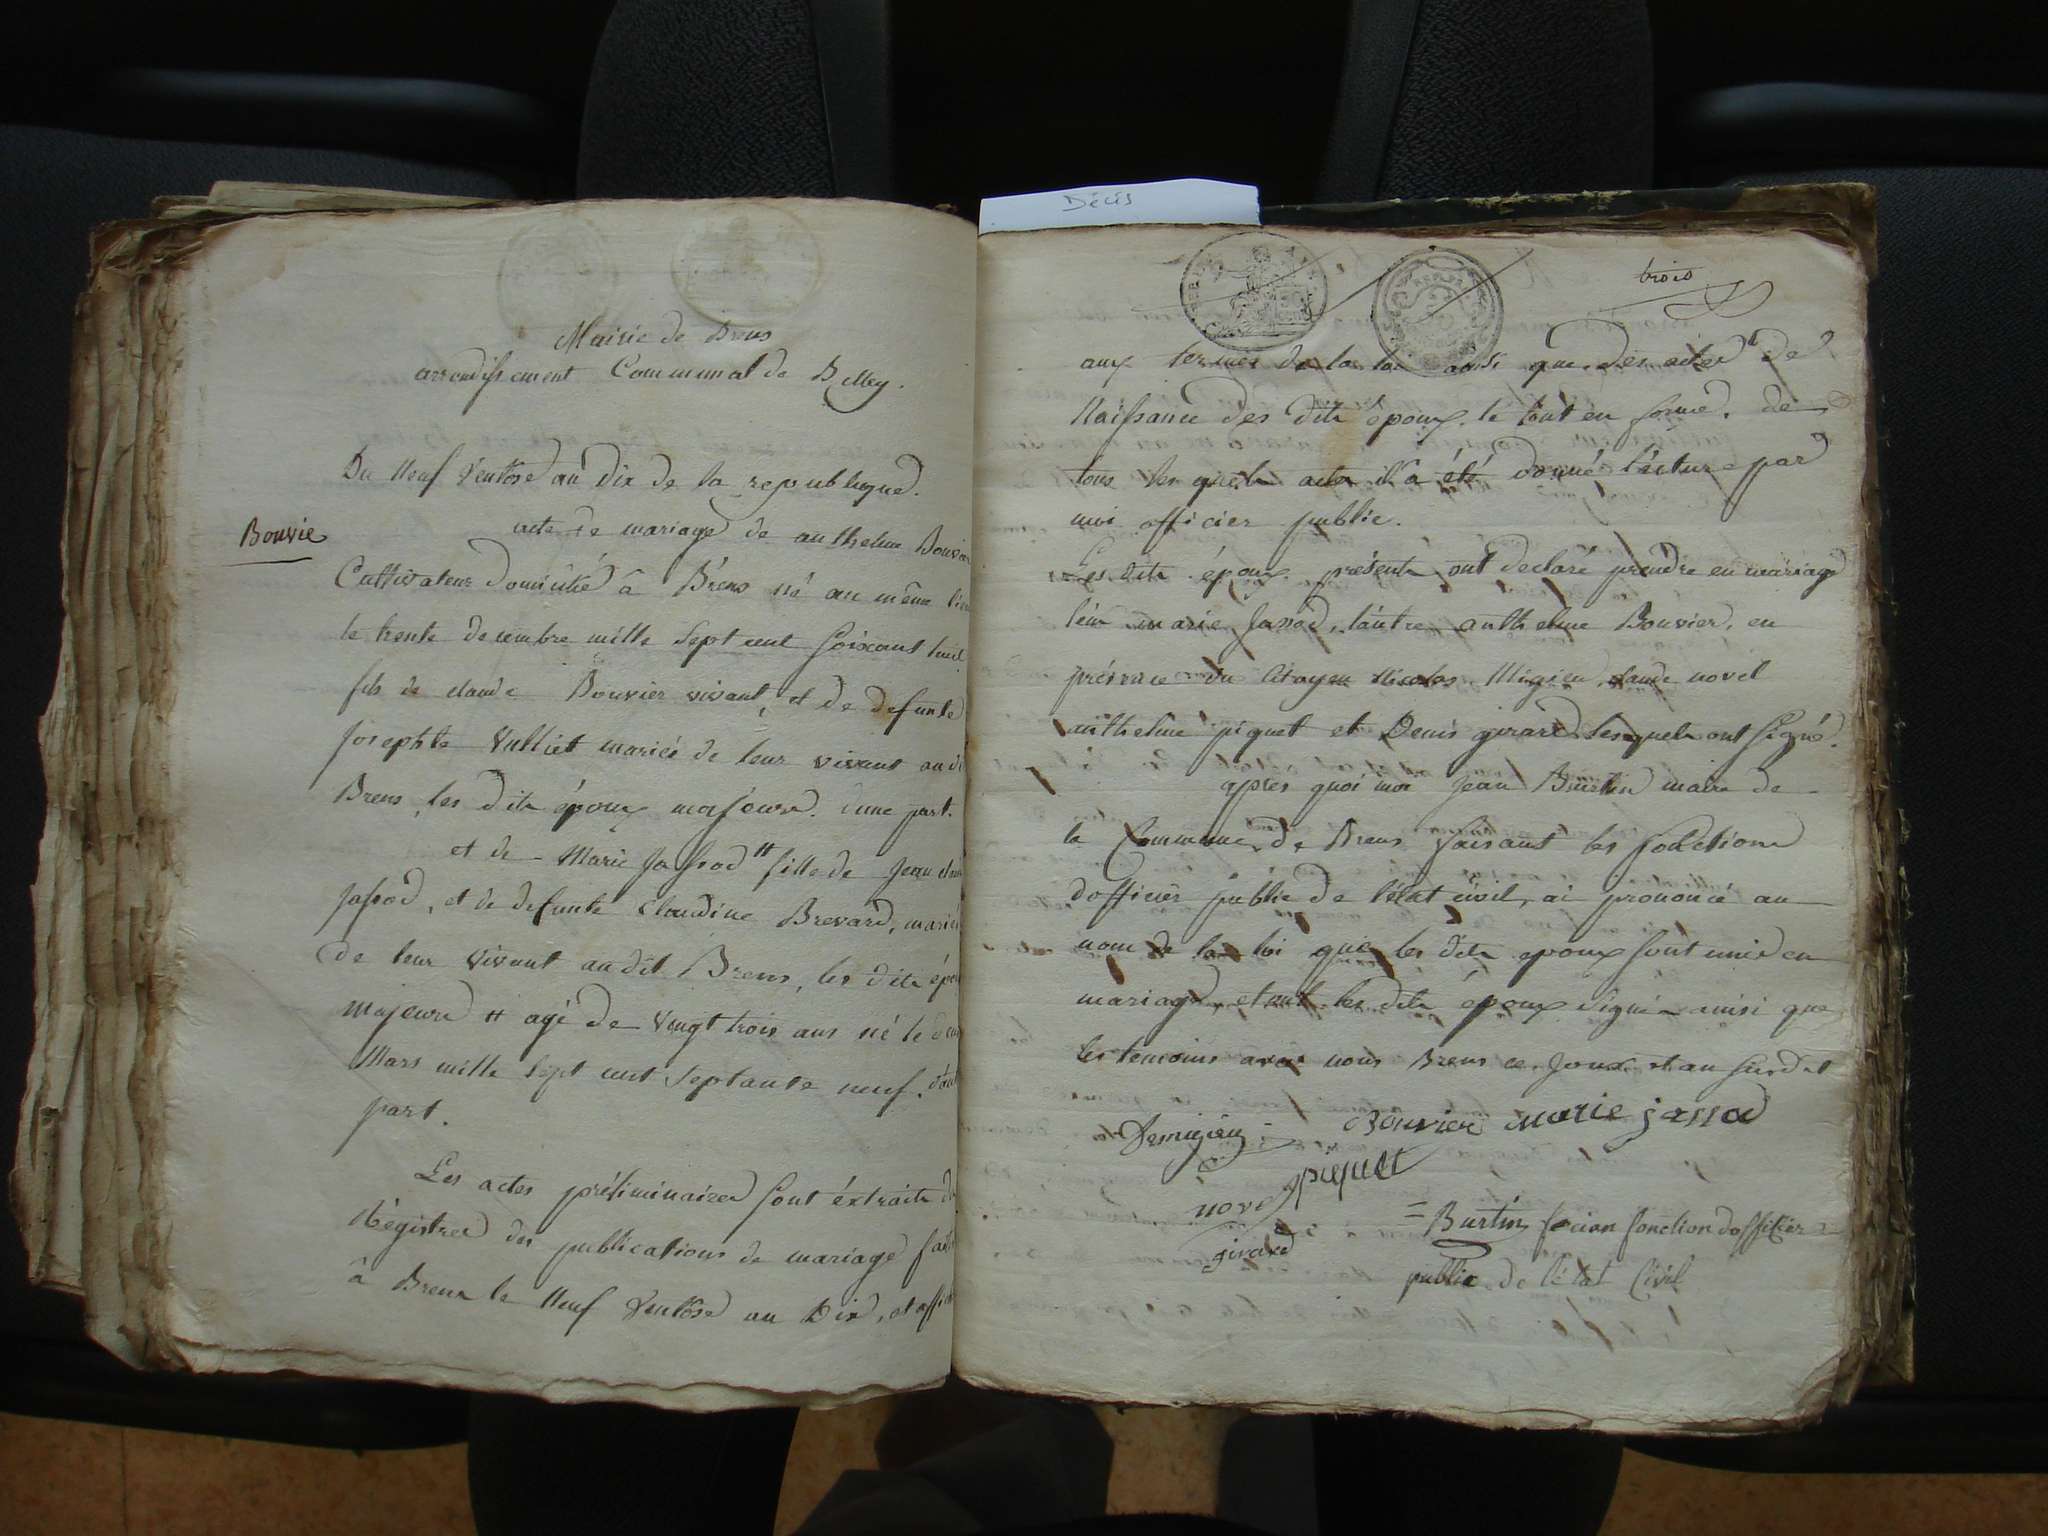 Mairie de Brens
arrondissement Communal de Belley.
Du Neuf Ventôse an Dix de la republique.
Bouvie
acte de mariage de anthelme Bouvier
Cultivateur Domicilié à Brens né au même lieu
le trente decembre mille Sept cent Soixant huit
fils de claude Bouvier vivant, et de defunte
Josephte Vulliet mariés de leur vivant audi
Brens, les dits époux majeurs. d'une part.
et de Marie Jassod # fille de Jean claude
Jassod, et de defunte Claudine Brevard, mariés
De leur vivant au dit Brens, les dits époux
majeurs # agé de vingt trois ans né le
Mars mille Sept cent Septante neuf. d'autre
part.
Les actes préliminaires Sont éxtraits des
Régistres des publications de mariage faites
à Brens le Neuf Ventôse an Dix, et affiché
Décès
trois
aux termes de la loi ainsi que des actes de
Naissance des dits époux. le tout en forme. de
tous les quels actes il a été donné lecture par
moi officier public.
Les dits époux présents ont declaré prendre en mariage
l'un marie Jassod, l'autre anthelme Bouvier, en
présence du Citoyen Nicolas Migieu, claude novel
anthelme piquet et Denis girard lesquels ont Signé.
après quoi moi Jean Burtin maire de
la Commune de Brens faisant les fonctions
d'officier public de l'état civil, ai prononcé au
nom de la loi que les dits epoux Sont unis en
mariage, et ont les dits époux Signé ainsi que
les temoins avec nous Brens ce Jour et an Susdit
Demigieu Bouvier marie jassod
piquet
novel
girard
= Burtin fecian fonction dofficier
public de l'état Civil